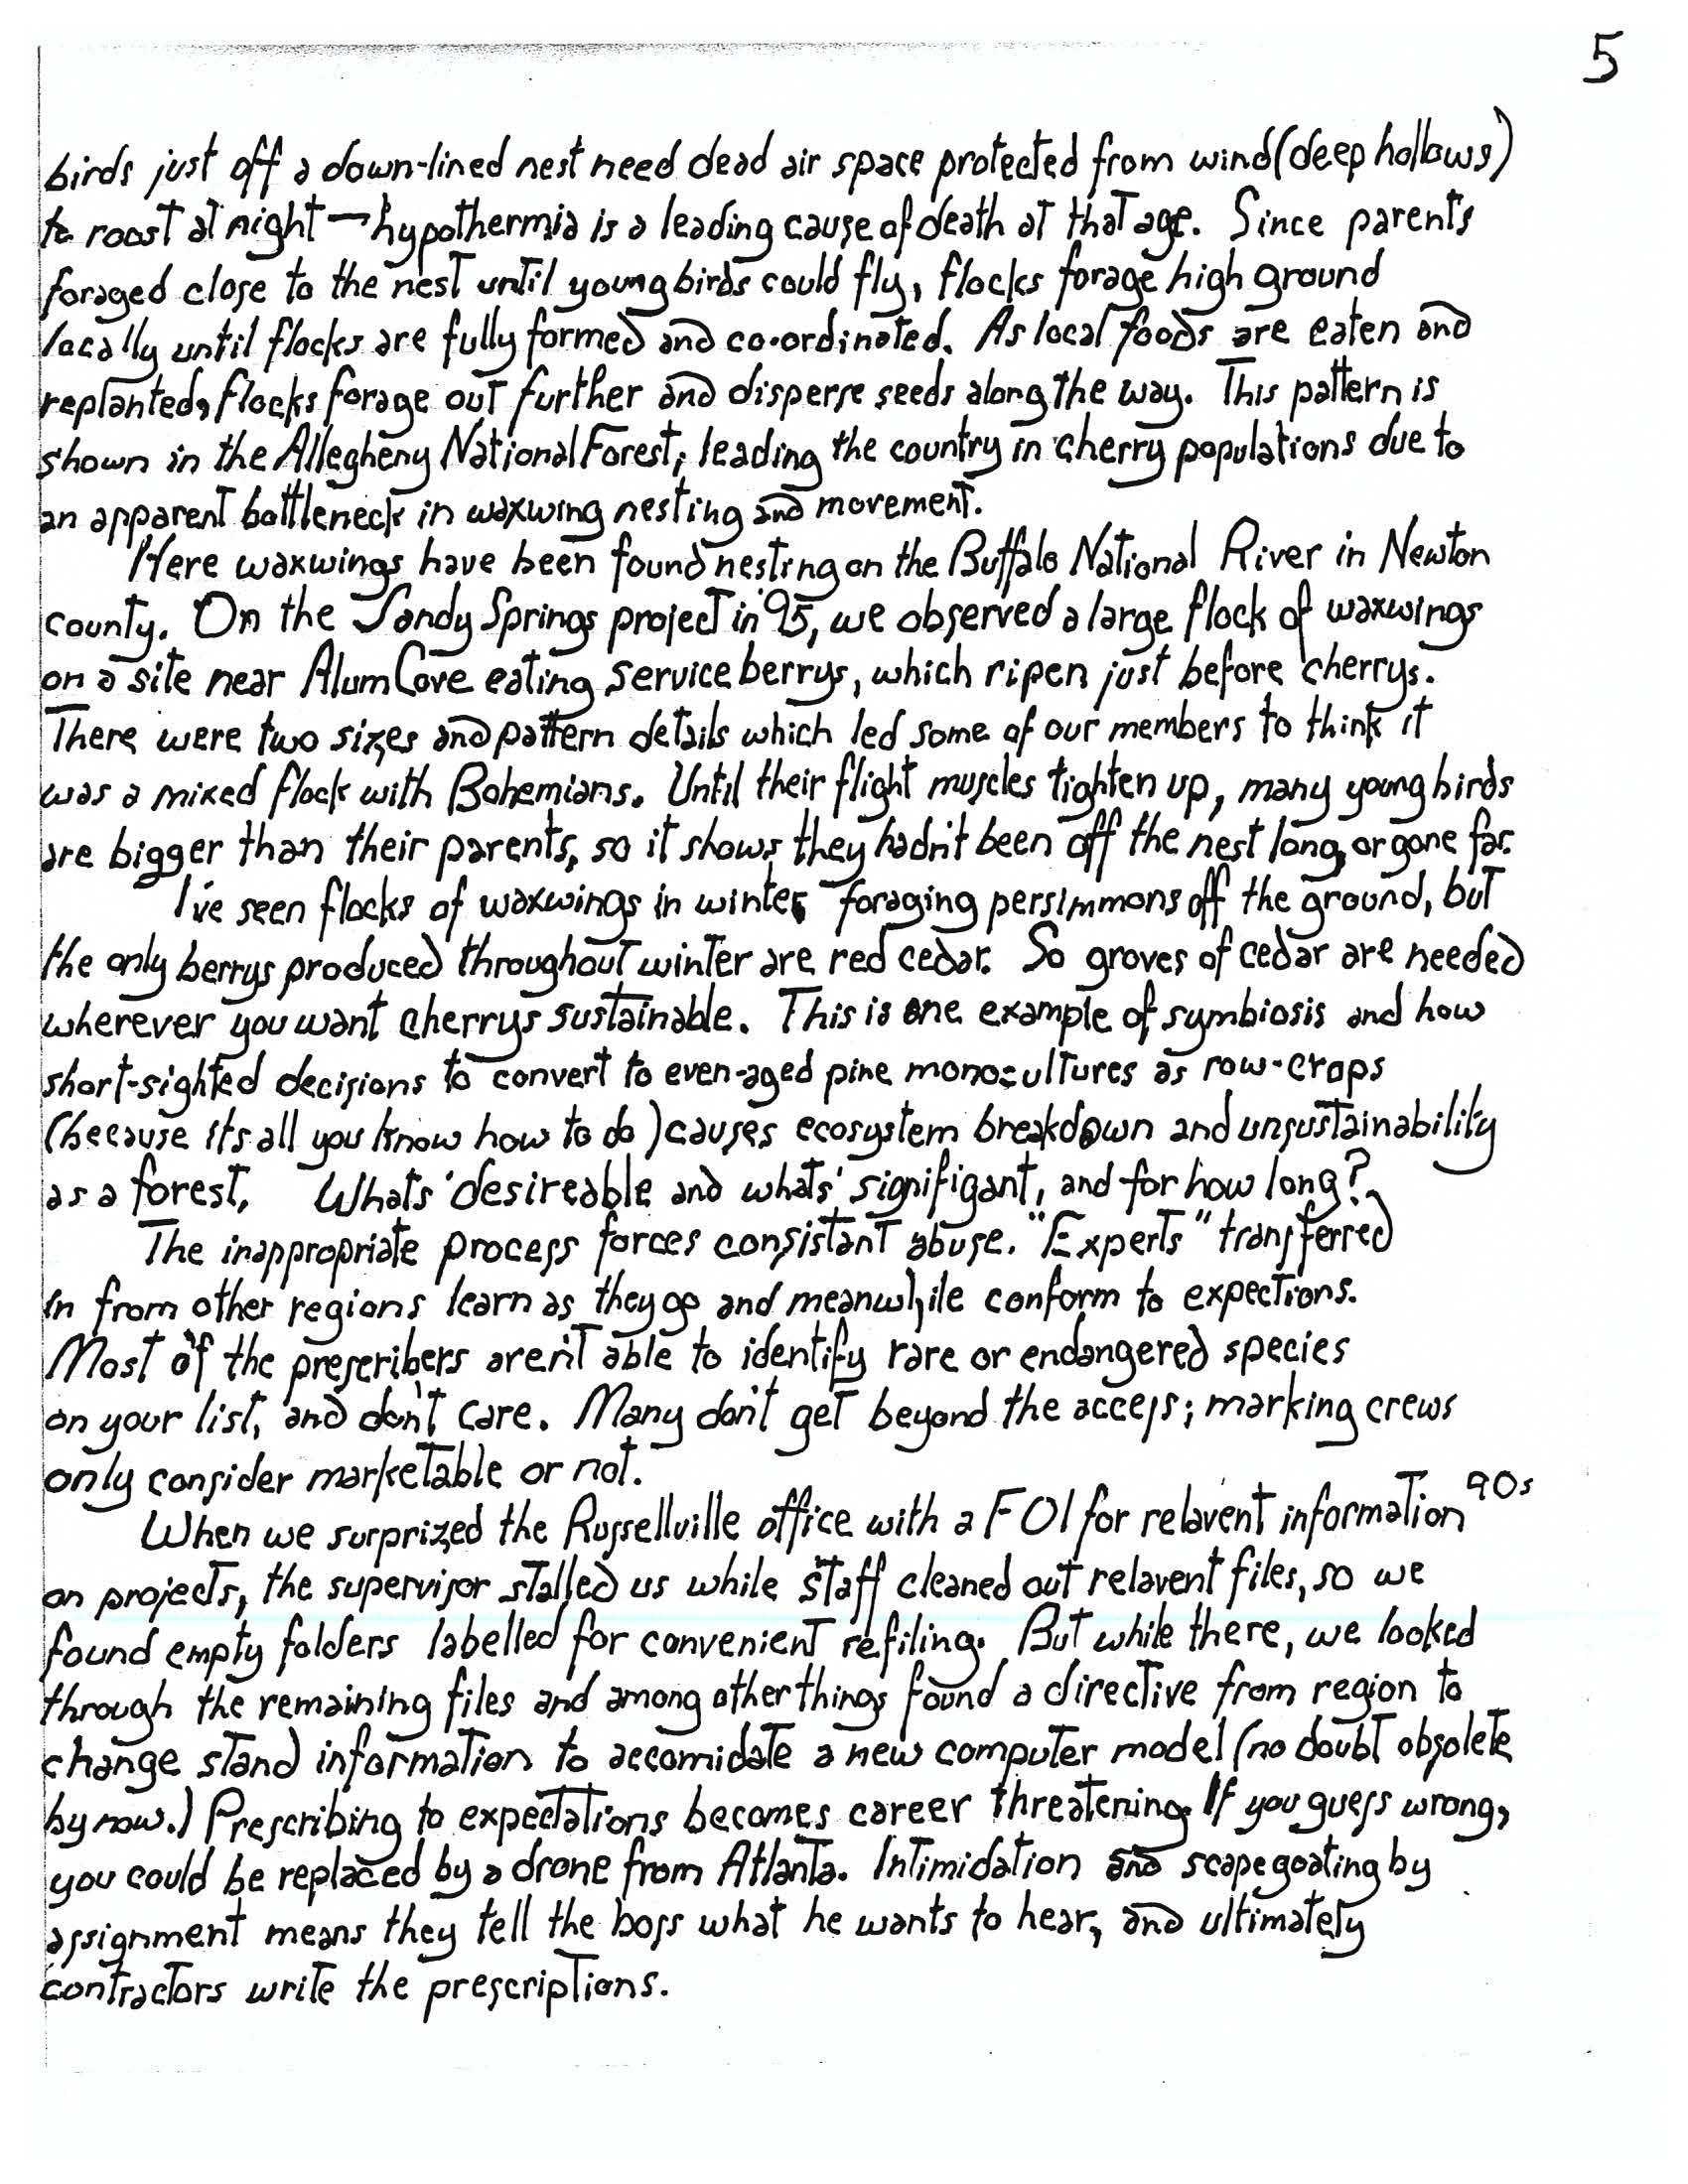 5
birds just off a down-lined nest need dead air space protected from wind (deep hollows)
to roost at night — hypothermia is a leading cause of death at that age. Since parents
foraged close to the nest until young birds could fly, flocks forage high ground
locally until flocks are fully formed and co-ordinated. As local foods are eaten and
replanted, flocks forage out further and disperse seeds along the way. This pattern is
shown in the Allegheny National Forest, leading the country in cherry populations due to
an apparent bottleneck in waxwing nesting and movement.
Here waxwings have been found nesting on the Buffalo National River in Newton
county. On the Sandy Springs project in '95, we observed a large flock of waxwings
on a site near Alum Cove eating service berrys, which ripen just before cherrys.
There were two sizes and pattern details which led some of our members to think it
was a mixed flock with Bohemians. Until their flight muscles tighten up, many young birds
are bigger than their parents, so it shows they hadn't been off the nest long, or gone far.
I've seen flocks of waxwings in winter foraging persimmons off the ground, but
the only berrys produced throughout winter are red cedar. So groves of cedar are needed
wherever you want cherrys sustainable. This is one example of symbiosis and how
short-sighted decisions to convert to even-aged pine monocultures as row-crops
(because its all you know how to do) causes ecosystem breakdown and unsustainability
as a forest. Whats 'desireable and whats' signifigant, and for how long?
The inappropriate process forces consistant abuse. "Experts" transferred
in from other regions learn as they go and meanwhile conform to expections.
Most of the prescribers aren't able to identify rare or endangered species
on your list, and don't care. Many don't get beyond the access; marking crews
only consider marketable or not.
When we surprized the Russellville office with a FOI for relavent information 90s
on projects, the supervisor stalled us while staff cleaned out relavent files, so we
found empty folders labelled for convenient refiling. But while there, we looked
through the remaining files and among other things found a directive from region to
change stand information to accomidate a new computer model (no doubt obsolete
by now.) Prescribing to expectations becomes career threatening. If you guess wrong,
you could be replaced by a drone from Atlanta. Intimidation and scapegoating by
assignment means they tell the boss what he wants to hear, and ultimately
contractors write the prescriptions.